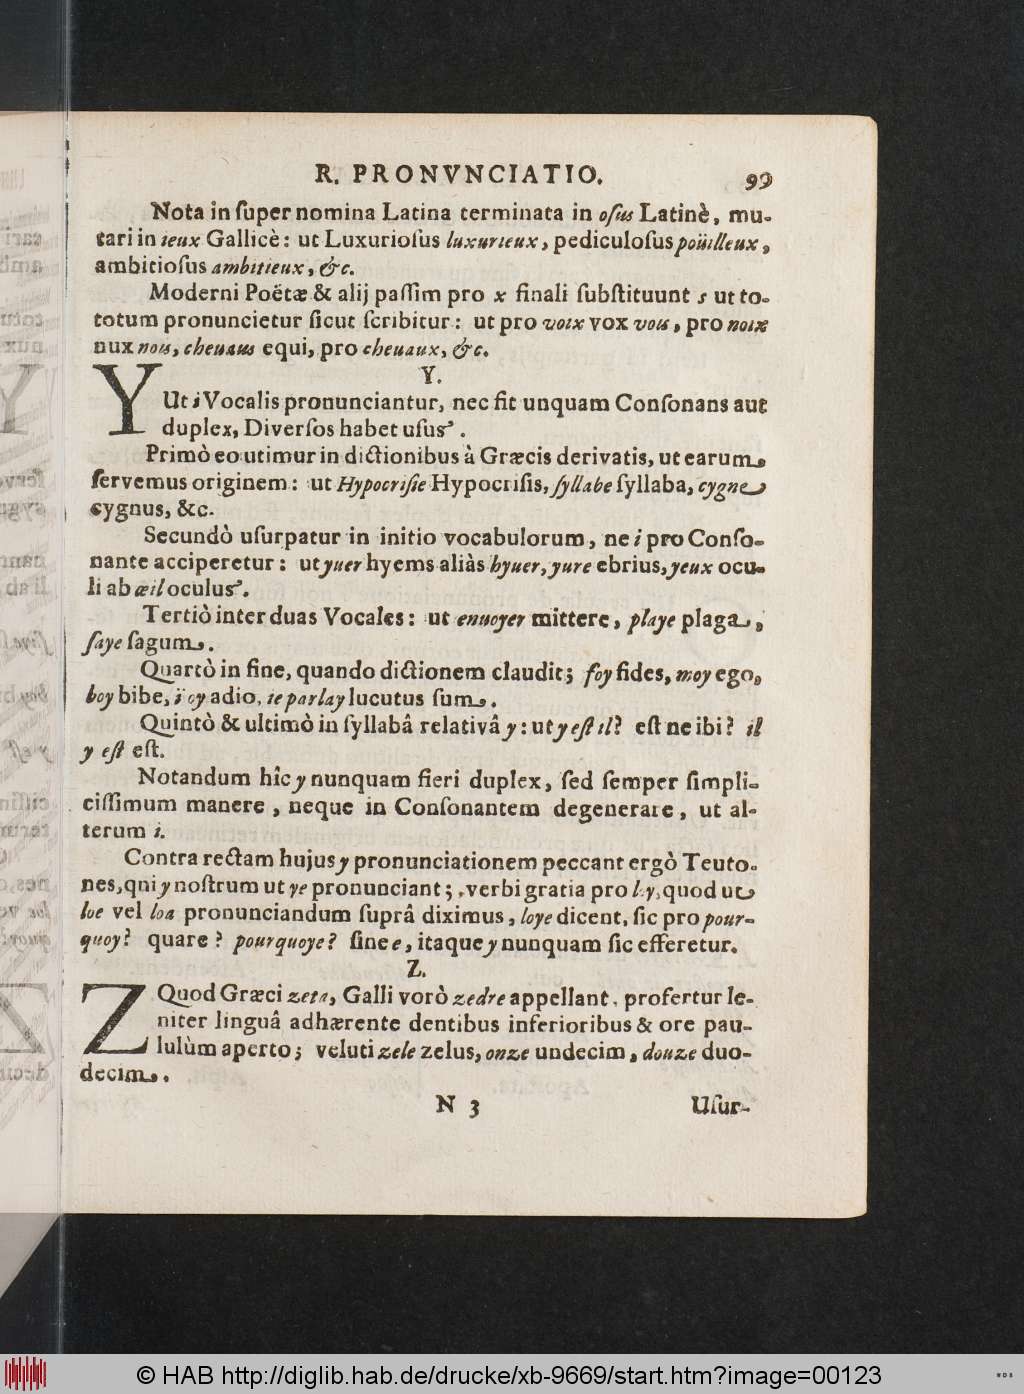 R. PRONVNCIATIO. 99
Nota in ſuper nomina Latina terminata in oſus Latinè, mu-
tari in ieux Gallicè: ut Luxurioſus luxurieux, pediculoſus poüilleux,
ambitioſus ambitieux, &c.
Moderni Poëtæ & alij paſſim pro x finali ſubſtituunt s ut to-
totum pronuncietur ſicut ſcribitur: ut pro voix vox vois, pro noix
nux nois, cheuaus equi, pro cheuaux, &c.
Y.
YUt i Vocalis pronunciantur, nec fit unquam Conſonans aut
duplex, Diverſos habet uſus.
Primò eo utimur in dictionibus à Græcis derivatis, ut earum
ſervemus originem: ut Hypocriſie Hypocriſis, ſyllabe ſyllaba, cygne
cygnus, &c.
Secundò uſurpatur in initio vocabulorum, ne i pro Conſo-
nante acciperetur: ut yuer hyems aliàs hyuer, yure ebrius, yeux ocu-
li ab œil oculus.
Tertiò inter duas Vocales: ut enuoyer mittere, playe plaga,
ſaye ſagum.
Quartò in fine, quando dictionem claudit; foy fides, moy ego,
boy bibe, i'oy adio, ie parlay lucutus ſum.
Quintò & ultimò in ſyllabâ relativâ y: ut y eſt il? eſt ne ibi? il
y eſt eſt.
Notandum hîc y nunquam fieri duplex, ſed ſemper ſimpli-
ciſſimum manere, neque in Conſonantem degenerare, ut al-
terum i.
Contra rectam hujus y pronunciationem peccant ergò Teuto-
nes, qui y noſtrum ut ye pronunciant; verbi gratia pro loy, quod ut
loe vel loa pronunciandum ſuprâ diximus, loye dicent, ſic pro pour-
quoy? quare? pourquoye? ſine e, itaque y nunquam ſic efferetur.
Z.
ZQuod Græci zeta, Galli vorò zedre appellant, profertur le-
niter linguâ adhærente dentibus inferioribus & ore pau-
lulùm aperto; veluti zele zelus, onze undecim, douze duo-
decim.
N 3 Uſur-
© HAB http://diglib.hab.de/drucke/xb-9669/start.htm?image=00123